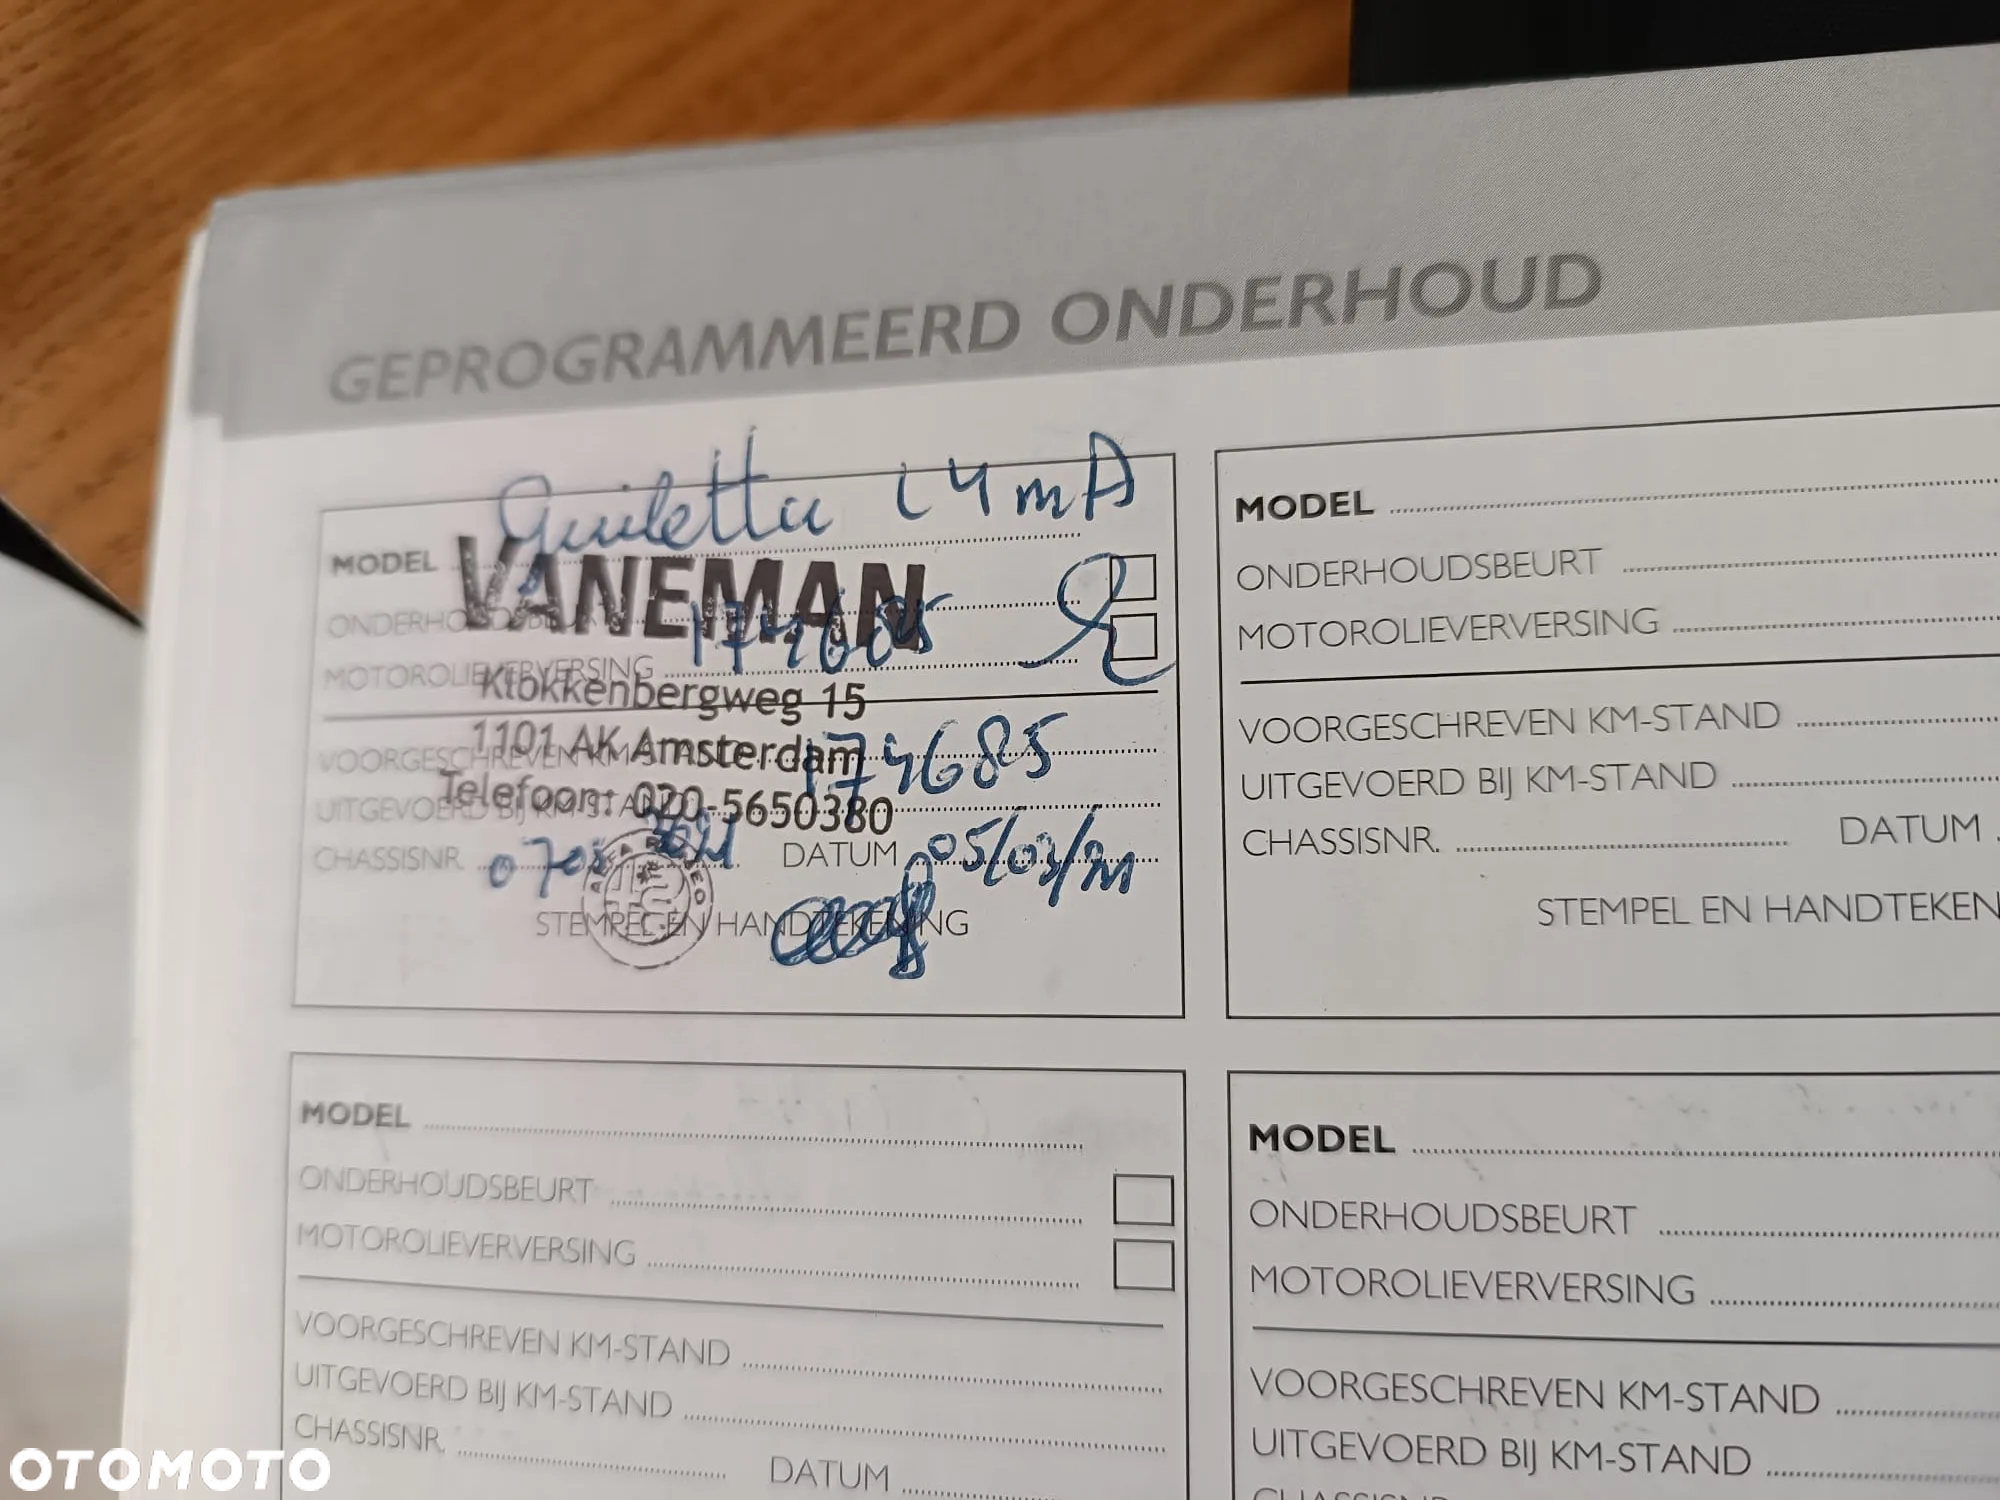 GEPROGRAMMEERD ONDERHOUD
Guiletta 1.4 mA
MODEL
VANEMAN
ONDERHOUDSBEURT
174685
MOTOROLIEVERVERSING
Klokkenbergweg 15
1101 AK Amsterdam
VOORGESCHREVEN KM-STAND
174685
Telefoon: 020-5650380
UITGEVOERD BIJ KM-STAND
CHASSISNR. DATUM 05/03/21
STEMPEL EN HANDTEKENING
MODEL
ONDERHOUDSBEURT
MOTOROLIEVERVERSING
VOORGESCHREVEN KM-STAND
UITGEVOERD BIJ KM-STAND
CHASSISNR. DATUM
STEMPEL EN HANDTEKEN
MODEL
ONDERHOUDSBEURT
MOTOROLIEVERVERSING
VOORGESCHREVEN KM-STAND
UITGEVOERD BIJ KM-STAND
CHASSISNR. DATUM
MODEL
ONDERHOUDSBEURT
MOTOROLIEVERVERSING
VOORGESCHREVEN KM-STAND
UITGEVOERD BIJ KM-STAND
OTOMOTO